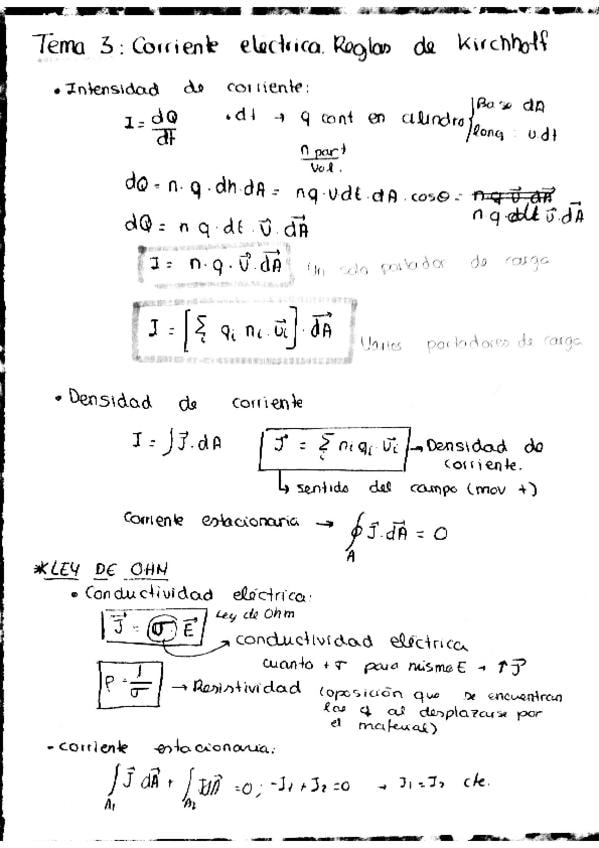 Tema 3: Corriente electrica. Reglas de Kirchhoff
• Intensidad de corriente:
I = dQ/dt • dt → q cont en cilindro { Base dA
long: v.dt
n part/vol.
dQ = n · q · dh · dA = nq · vdt · dA · cosθ =
n q dt v⃗ · dA⃗
dQ = n q · dt · v⃗ · dA⃗
I = n · q · v⃗ · dA⃗ Un solo portador de carga
I = [Σi qi ni · v⃗i] · dA⃗ Varios portadores de carga
• Densidad de corriente
I = ∫ J⃗ · dA J⃗ = Σi ni qi v⃗i → Densidad de
corriente.
↳ sentido del campo (mov +)
Corriente estacionaria → ∮A J⃗ · dA⃗ = 0
* LEY DE OHM
• Conductividad eléctrica:
J⃗ = σ E⃗ Ley de Ohm
→ conductividad eléctrica
cuanto + σ para mismo E → ↑ J⃗
ρ = 1/σ → Resistividad (oposición que se encuentran
las q al desplazarse por
el material)
- corriente estacionaria:
∫A1 J⃗ dA⃗ + ∫A2 J⃗ dA⃗ = 0 ; -J1 + J2 = 0 → J1 = J2 cte.